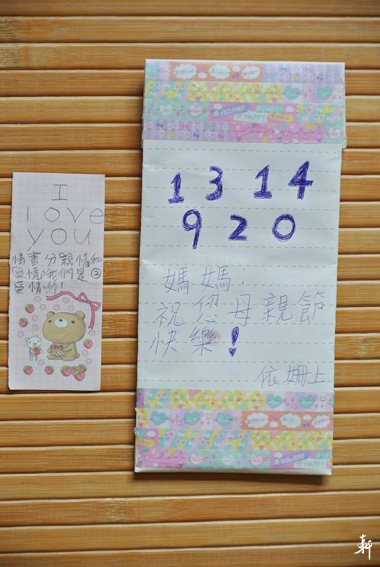 I
love
you
情書分親情和
愛情,我們是②
愛情的!
1314
920
媽媽,
祝您母親節
快樂!
依姍上
軒